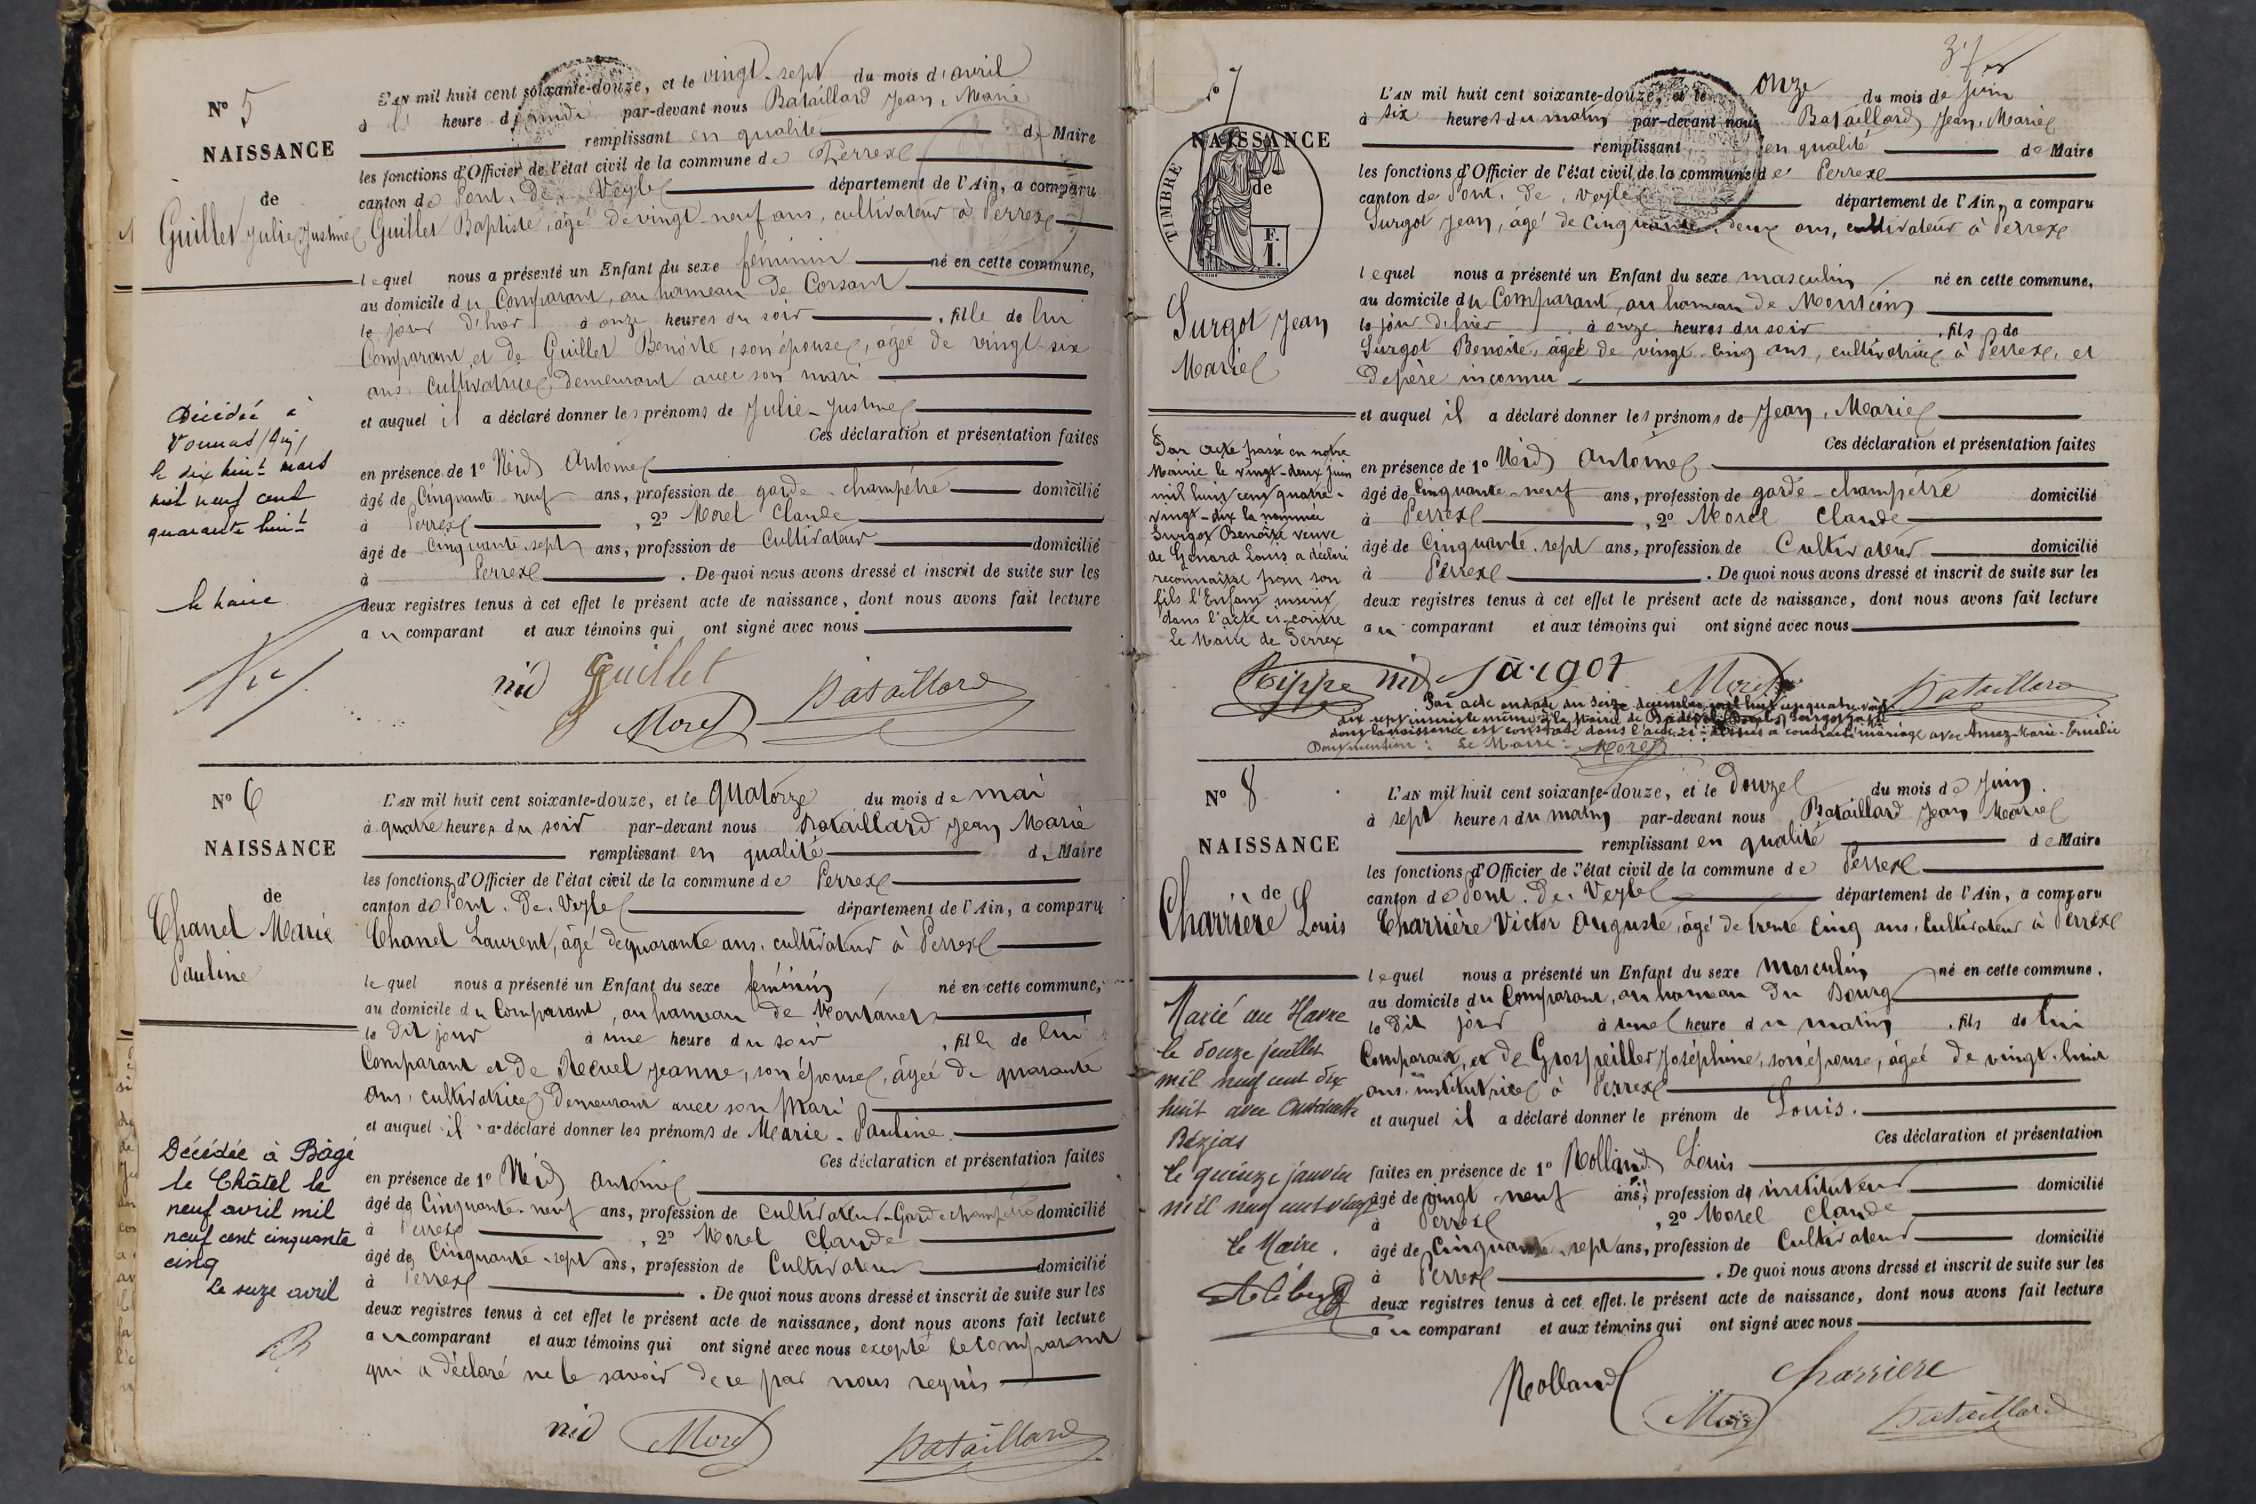 N° 5
NAISSANCE
de
Guillet Julie Justine
L'AN mil huit cent soixante-douze, et le vingt-sept du mois d'avril
à heure d midi par-devant nous Bataillard Jean, Marie
remplissant en qualité de Maire
les fonctions d'Officier de l'état civil de la commune de Perrex
canton de Pont. De. Veyle département de l'Ain, a comparu
Guillet Baptiste, âgé de vingt-neuf ans, cultivateur à Perrex
lequel nous a présenté un Enfant du sexe féminin né en cette commune,
au domicile du Comparant, au hameau de Corsant
le jour d'hier à onze heures du soir , fille de lui
Comparant et de Guillet Benoîte, son épouse, âgée de vingt-six
ans, cultivatrice demeurant avec son mari
et auquel il a déclaré donner les prénoms de Julie-Justine
Ces déclaration et présentation faites
en présence de 1° Nid Antoine
âgé de Cinquante-neuf ans, profession de garde-champêtre domicilié
à Perrex , 2° Morel Claude
âgé de Cinquante-sept ans, profession de Cultivateur domicilié
à Perrex . De quoi nous avons dressé et inscrit de suite sur les
deux registres tenus à cet effet le présent acte de naissance, dont nous avons fait lecture
au comparant et aux témoins qui ont signé avec nous
Décédée à
Vonnas (Ain)
le dix huit mars
mil neuf cent
quarante huit
le maire
nid Guillet
Morel Bataillard
N° 6
NAISSANCE
de
Chanel Marie
Pauline
L'AN mil huit cent soixante-douze, et le quatorze du mois de mai
à quatre heures du soir par-devant nous Bataillard Jean Marie
remplissant en qualité de Maire
les fonctions d'Officier de l'état civil de la commune de Perrex
canton de Pont. De. Veyle département de l'Ain, a comparu
Chanel Laurent, âgé de quarante ans, cultivateur à Perrex
lequel nous a présenté un Enfant du sexe féminin né en cette commune,
au domicile du Comparant, au hameau de
le dit jour à une heure du soir , fille de lui
Comparant et de Jeanne, son épouse, âgée de quarante
ans, cultivatrice demeurant avec son mari
et auquel il a déclaré donner les prénoms de Marie-Pauline
Ces déclaration et présentation faites
en présence de 1° Nid Antoine
âgé de Cinquante-neuf ans, profession de Cultivateur-Garde champêtre domicilié
à Perrex , 2° Morel Claude
âgé de Cinquante-sept ans, profession de Cultivateur domicilié
à Perrex . De quoi nous avons dressé et inscrit de suite sur les
deux registres tenus à cet effet le présent acte de naissance, dont nous avons fait lecture
au comparant et aux témoins qui ont signé avec nous excepté le Comparant
qui a déclaré ne le savoir de ce par nous requis
Décédée à Bâgé
le Châtel le
neuf avril mil
neuf cent cinquante
cinq
Le seize avril
nid Morel Bataillard
N° 7
NAISSANCE
de
TIMBRE
F.
1.
Surgot Jean
Marie
L'AN mil huit cent soixante-douze, et le onze du mois de Juin
à six heures du matin par-devant nous Bataillard Jean, Marie
remplissant en qualité de Maire
les fonctions d'Officier de l'état civil de la commune de Perrex
canton de Pont. De. Veyle département de l'Ain, a comparu
Surgot Jean, âgé de Cinquante-deux ans, cultivateur à Perrex
lequel nous a présenté un Enfant du sexe masculin né en cette commune,
au domicile du Comparant, au hameau de Montcin
le jour d'hier à onze heures du soir , fils de
Surgot Benoîte, âgée de vingt-cinq ans, cultivatrice à Perrex, et
de père inconnu
et auquel il a déclaré donner les prénoms de Jean, Marie
Ces déclaration et présentation faites
en présence de 1° Nid Antoine
âgé de Cinquante-neuf ans, profession de garde-champêtre domicilié
à Perrex , 2° Morel Claude
âgé de Cinquante-sept ans, profession de Cultivateur domicilié
à Perrex . De quoi nous avons dressé et inscrit de suite sur les
deux registres tenus à cet effet le présent acte de naissance, dont nous avons fait lecture
au comparant et aux témoins qui ont signé avec nous
Par acte passé en notre
Mairie le vingt-deux juin
mil huit cent quatre-
vingt-dix la nommée
Surgot Benoîte veuve
de Louis a déclaré
reconnaître pour son
fils l'Enfant inscrit
dans l'acte ci-contre
Le Maire de Perrex
Tippe nid Surgot Morel Bataillard
Par acte en date du seize décembre mil huit cent quatre vingt
dix sept inscrit le même à la Mairie de
dont la naissance est constatée dans l'acte ci-dessus a contracté mariage avec Marie-Emilie
Dont mention: Le Maire: Morel
N° 8
NAISSANCE
de
Charrière Louis
L'AN mil huit cent soixante-douze, et le Douze du mois de Juin.
à sept heures du matin par-devant nous Bataillard Jean Marie
remplissant en qualité de Maire
les fonctions d'Officier de l'état civil de la commune de Perrex
canton de Pont. De. Veyle département de l'Ain, a comparu
Charrière Victor Auguste, âgé de trente cinq ans, Cultivateur à Perrex
lequel nous a présenté un Enfant du sexe Masculin né en cette commune,
au domicile du Comparant, au hameau du Bourg
le dit jour à une heure du matin , fils de lui
Comparant, et de Grospeiller Joséphine, son épouse, âgée de vingt-huit
ans, institutrice à Perrex
et auquel il a déclaré donner le prénom de Louis.
Ces déclaration et présentation
faites en présence de 1° Rolland Louis
âgé de vingt-neuf ans, profession de instituteur domicilié
à Perrex , 2° Morel Claude
âgé de Cinquante-sept ans, profession de Cultivateur domicilié
à Perrex . De quoi nous avons dressé et inscrit de suite sur les
deux registres tenus à cet effet le présent acte de naissance, dont nous avons fait lecture
au comparant et aux témoins qui ont signé avec nous
Marié au Havre
le douze juillet
mil neuf cent dix
huit avec Antoinette
Bézias
le quinze janvier
mil neuf cent vingt
le Maire,
Rolland Charriere
Morel Bataillard